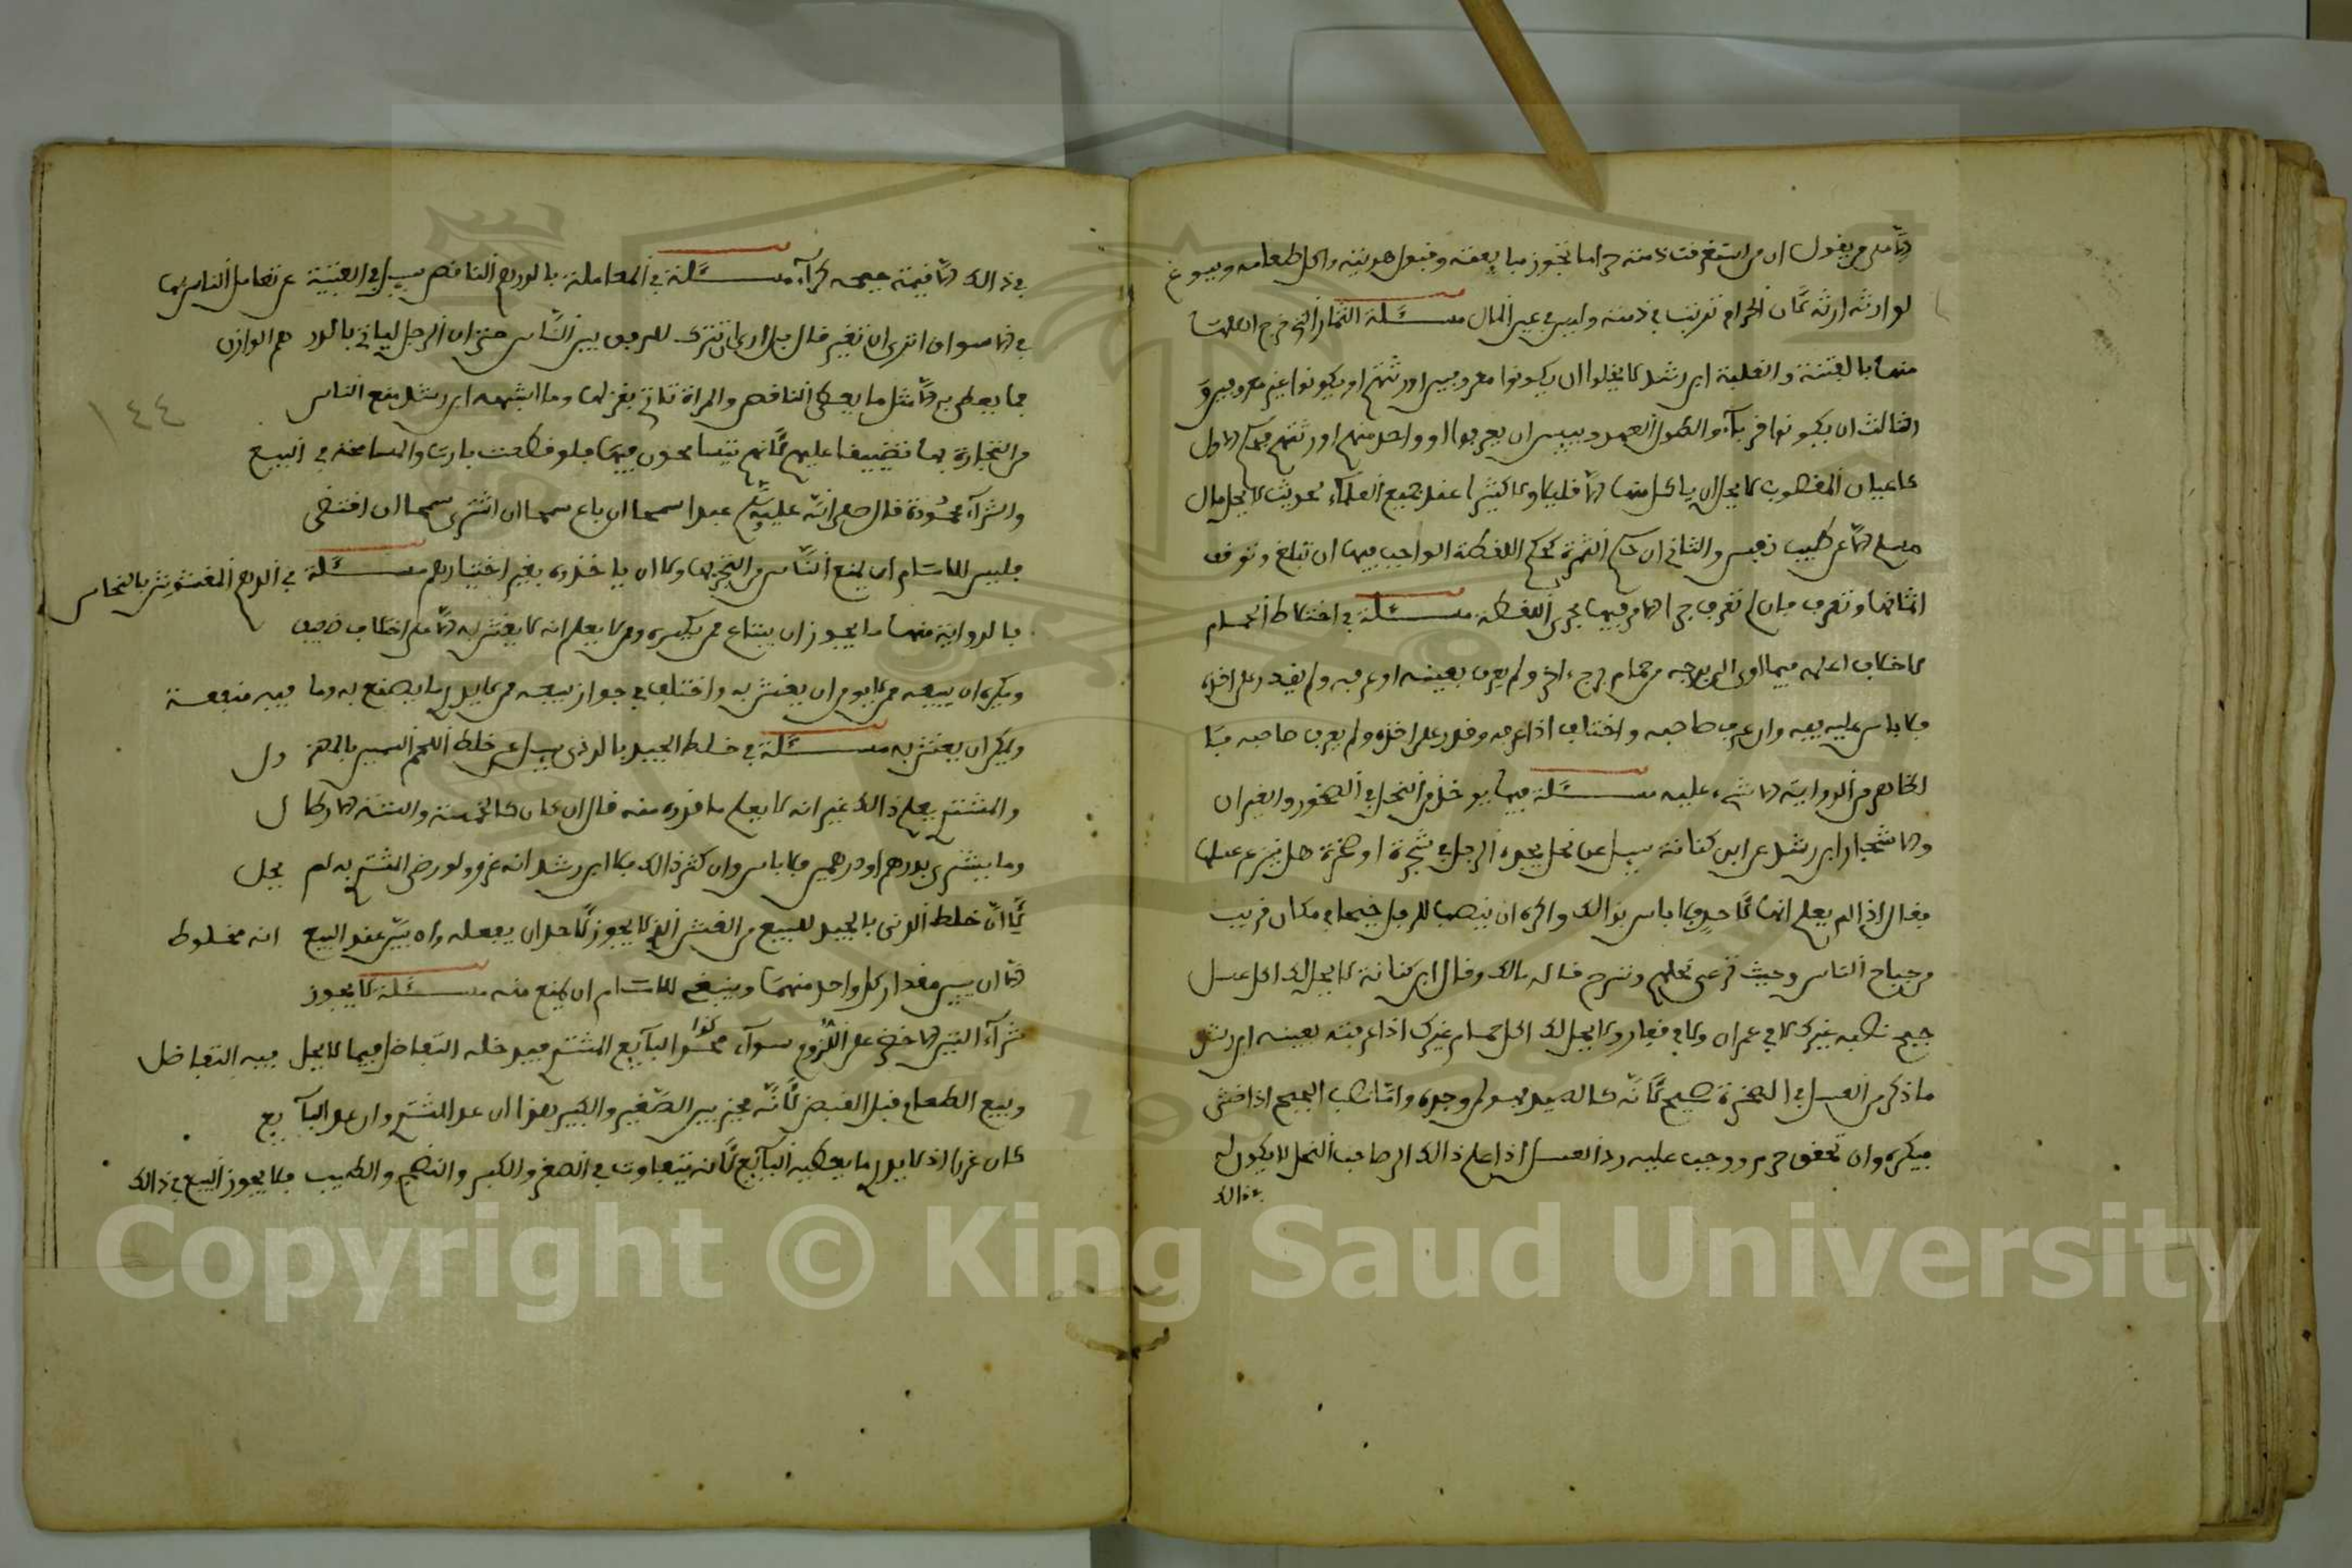 الا من يقول ان من استغرقت ذمته حراما تجوز مبايعته وقبول هديته واكل طعامه ويسوغ
لوارثه ارثه لان الحرام ترتب في ذمته وليس في عين المال مسئلة الثمار التي خرج اهلها
منها بالفتنة والغلبة ابن رشد لا يخلوا ان يكونوا معروفين اورثتهم او يكونوا غير معروفين
الثالث ان يكونوا قرباء والطول العهد وييس ان يعرفوا او واحد منهم اورثتهم فحكم الاول
كاعيان المغصوب لا يحل ان ياكل منها الا قليلا ولا كثيرا عند جميع العلماء لحديث لا يحل مال
مسلم الا عن طيب نفس والثاني ان حكم الثمرة كحكم اللقطة الواجب فيها ان تباع وتوقف
اثمانها وتعرف فان لم تعرف جرا الامر فيها مجرى اللقطة مسئلة في اختلاط الحمام
لا خلاف اعلمه فيما اوى الى برجه من حمام برج اخر ولم يعرف بعينه او عرفه ولم يقدر على اخذه
فلا باس عليه فيه وان عرف صاحبه واختلف اذا عرفه وقدر على اخذه ولم يعرف صاحبه
الظاهر من الرواية الا شيء عليه مسئلة فيما يوخذ من النحل في الصخور والغيران
والاشجار ابن رشد عن ابن كنانة سيل عن نحل يجده الرجل في شجرة او صخرة هل ينزع عسلها
فقال اذا لم يعلم انها لاحد فلا باس بذالك واكره ان ينصب للرجل جبحا في مكان قريب
من جباح الناس وحيث ترعى نحلهم وتسرح قاله مالك وقال ابن كنانة لا يحل لك اكل عسل
جبح نصبه غيرك لا في عمران ولا في قفار ولا يحل لك اكل حمام غيرك اذا عرفته بعينه ابن رشد
ما ذكر من العسل في الصخرة صحيح لانه كالصيد فهو لمن وجده واما نصب الجبح اذا خشي
فيكره وان تحقق حرم ووجب عليه رد العسل اذا علم ذالك الى صاحب النحل لا يكون له
في ذالك
في ذالك الا قيمة جبحه كراء مسئلة في المعاملة بالدرهم الناقص سيل في العتبية عن تعامل الناس بها
في الاسواق اترى ان تغير قال بل ارى ان تترك للرفق بين الناس حتى ان الرجل لياتي بالدر هم الوازن
فما يعطى به الا مثل ما يعطى الناقص والمراة تاتي بغزلها وما اشبهه ابن رشد منع الناس
من التجارة بها تضييقا عليهم لانهم يتسامحون فيها فلو قطعت بارت والمسامحة في البيع
والشراء محمودة قال صلى الله عليه وسلم عبدا سمحا ان باع سمحا ان اشترى سمحا ان اقتضى
فليس للامام ان يمنع الناس من التجر بها ولا ان ياخذوه بغير اختيارهم مسئلة في الدرهم المغشوش بالنحاس
بالرواية منها ما يجوز ان يبتاع ممن يكسره ومن لا يعلم انه لا يغش به الا من اختلاف ضعيف
ويكره ان يبيعه ممن لا يومن ان يغش به واختلف في جواز بيعه ممن لا يدري ما يصنع به وما فيه منفعة
ويكره ان يغش به مسئلة في خلط الجيد بالردي سيل عن خلط اللحم السمين بالمهز ول
والمشتري يعلم ذالك غير انه لا يعلم ما قدره منه قال ان كان كالخمسة والستة الارطا ل
وما يشترى بدرهم او درهمين فلا باس وان كثر ذالك فلا ابن رشد انه غرر ولو رضي المشتري به لم يحل
لان خلط الدني بالجيد للبيع من الغش الذي لا يجوز لاحد ان يفعله وان بين عند البيع انه مخلوط
الا ان يبين مقدار كل واحد منهما وينبغي للامام ان يمنع منه مسئلة لا يجوز
شراء التين الاخضر على اللزوم سواء محسوا كذا البايع المشتري فيدخله التفاضل فيما لا يحل فيه التفاضل
وبيع الطعام قبل القبض لانه مخير بين الصغير والكبير هذا ان عد المشتري وان عد البا يع
كان غررا اذ لا يدري ما يعطيه البايع لانه يتفاوت في الصغر والكبر والنضج والطيب فلا يجوز البيع في ذالك
١٤٤
1957
Copyright © King Saud University